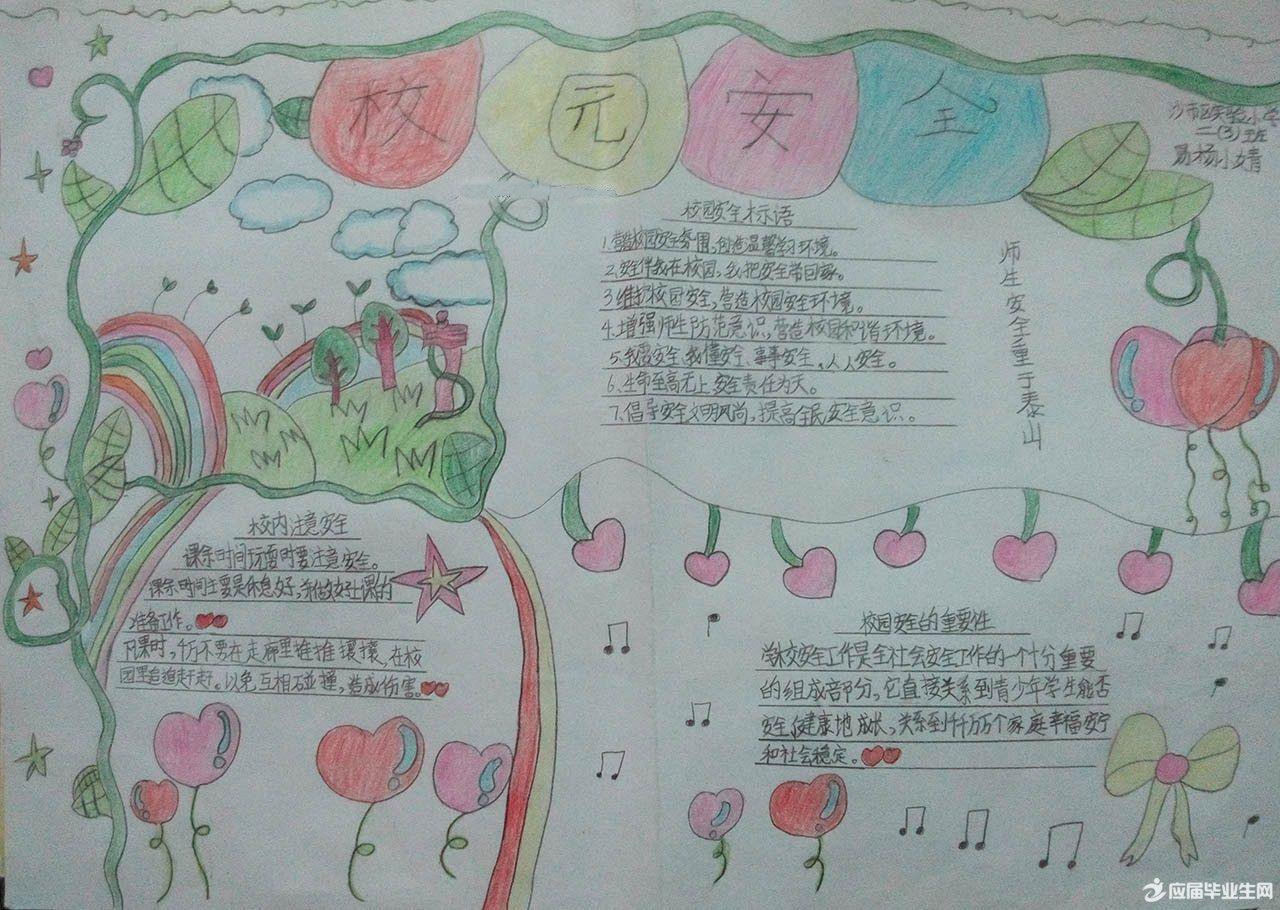 校园安全
沙市区实验小学
二(3)班
易杨小婧
校园安全标语
1.营造校园安全氛围,创造温馨学习环境。
2.安全伴我在校园,我把安全带回家。
3.维护校园安全,营造校园安全环境。
4.增强师生防范意识,营造校园和谐环境。
5.我要安全、我懂安全、事事安全、人人安全。
6.生命至高无上,安全责任为天。
7.倡导安全文明风尚,提高全民安全意识。
师生安全重于泰山
校内注意安全
课余时间玩耍时要注意安全。
课余时间主要是休息好,并做好上课的
准备工作。
下课时,千万不要在走廊里推推攘攘,在校
园里追追赶赶。以免互相碰撞,造成伤害。
校园安全的重要性
学校安全工作是全社会安全工作的一个十分重要
的组成部分。它直接关系到青少年学生能否
安全、健康地成长、关系到千千万万个家庭幸福安宁
和社会稳定。
应届毕业生网